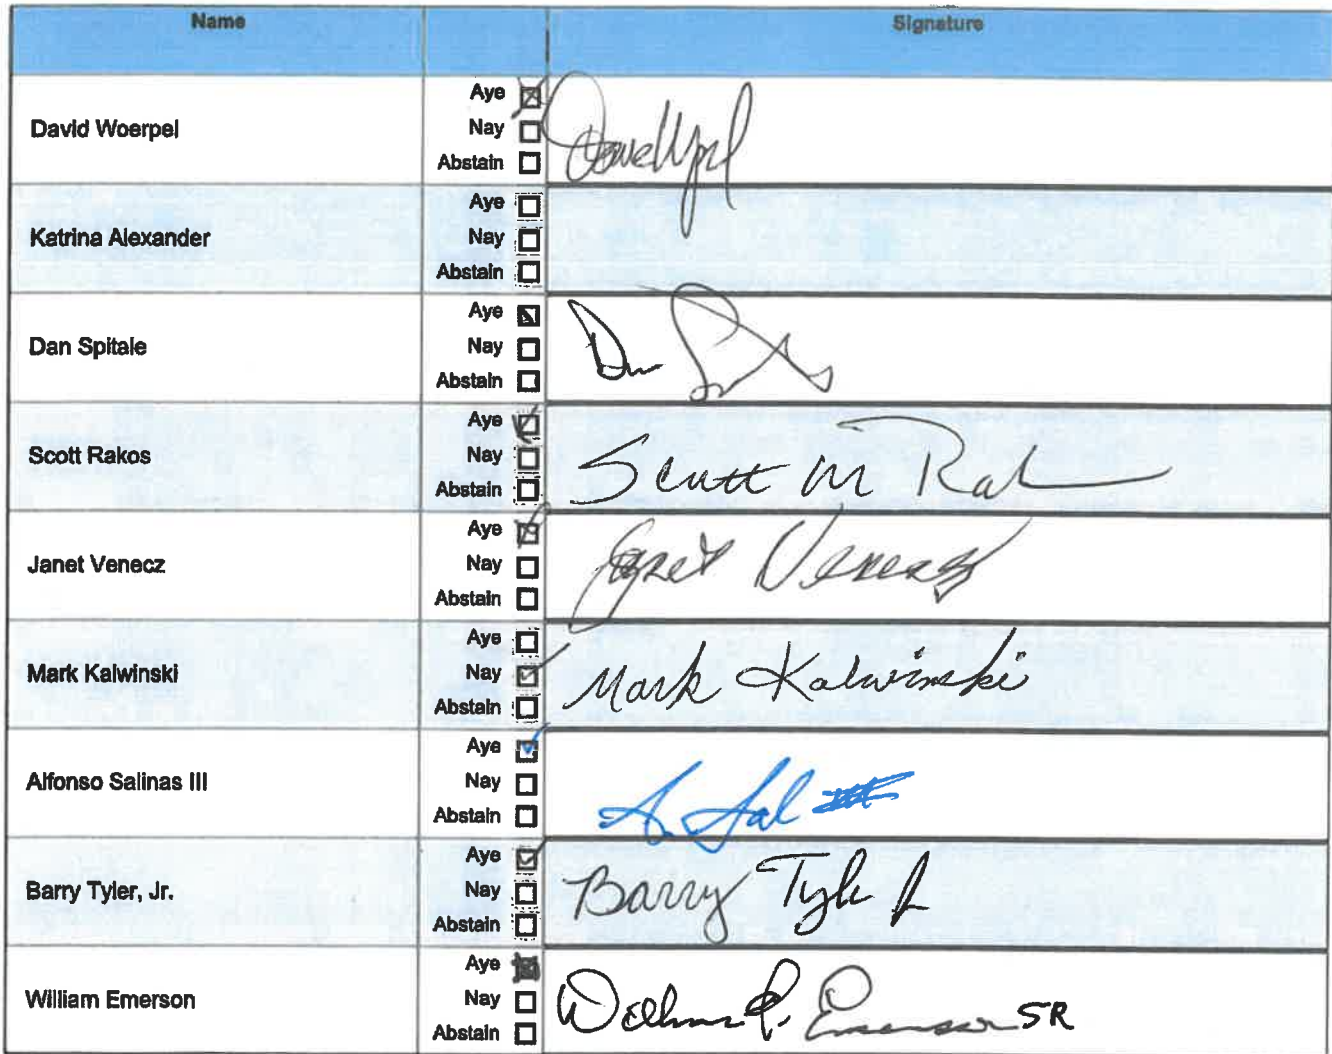 Name Signature
David Woerpel
Aye ☒
Nay ☐
Abstain ☐
Katrina Alexander
Aye ☐
Nay ☐
Abstain ☐
Dan Spitale
Aye ☒
Nay ☐
Abstain ☐
Dan
Scott Rakos
Aye ☑
Nay ☐
Abstain ☐
Scott M Rak
Janet Venecz
Aye ☒
Nay ☐
Abstain ☐
Janet Venecz
Mark Kalwinski
Aye ☐
Nay ☑
Abstain ☐
Mark Kalwinski
Alfonso Salinas III
Aye ☑
Nay ☐
Abstain ☐
A. Sal III
Barry Tyler, Jr.
Aye ☑
Nay ☐
Abstain ☐
Barry Tyler Jr
William Emerson
Aye ☒
Nay ☐
Abstain ☐
William P. Emerson SR